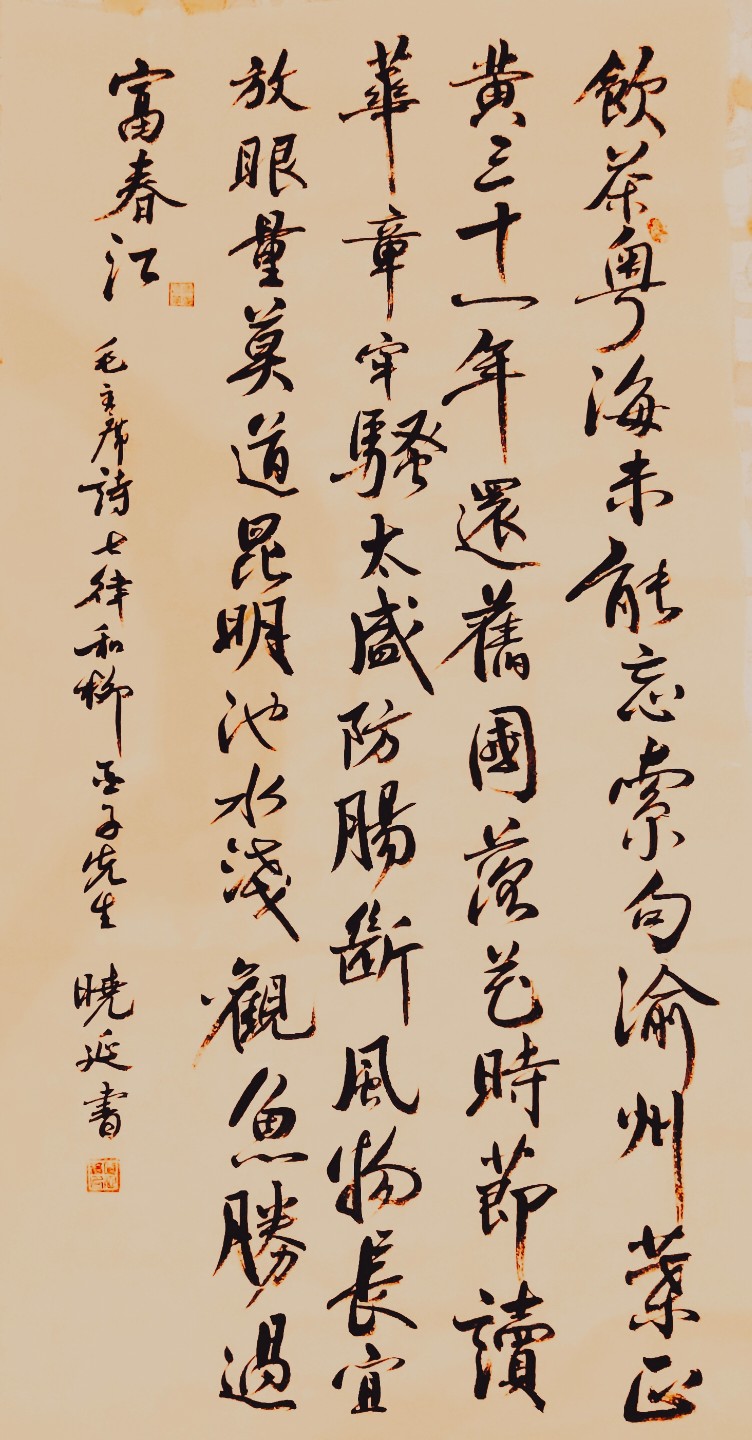 飲茶粵海未能忘索句渝州葉正
黄三十一年還舊國落花時節讀
華章牢騷太盛防腸斷風物長宜
放眼量莫道昆明池水淺觀魚勝過
富春江
毛主席詩七律和柳亞子先生 曉延書